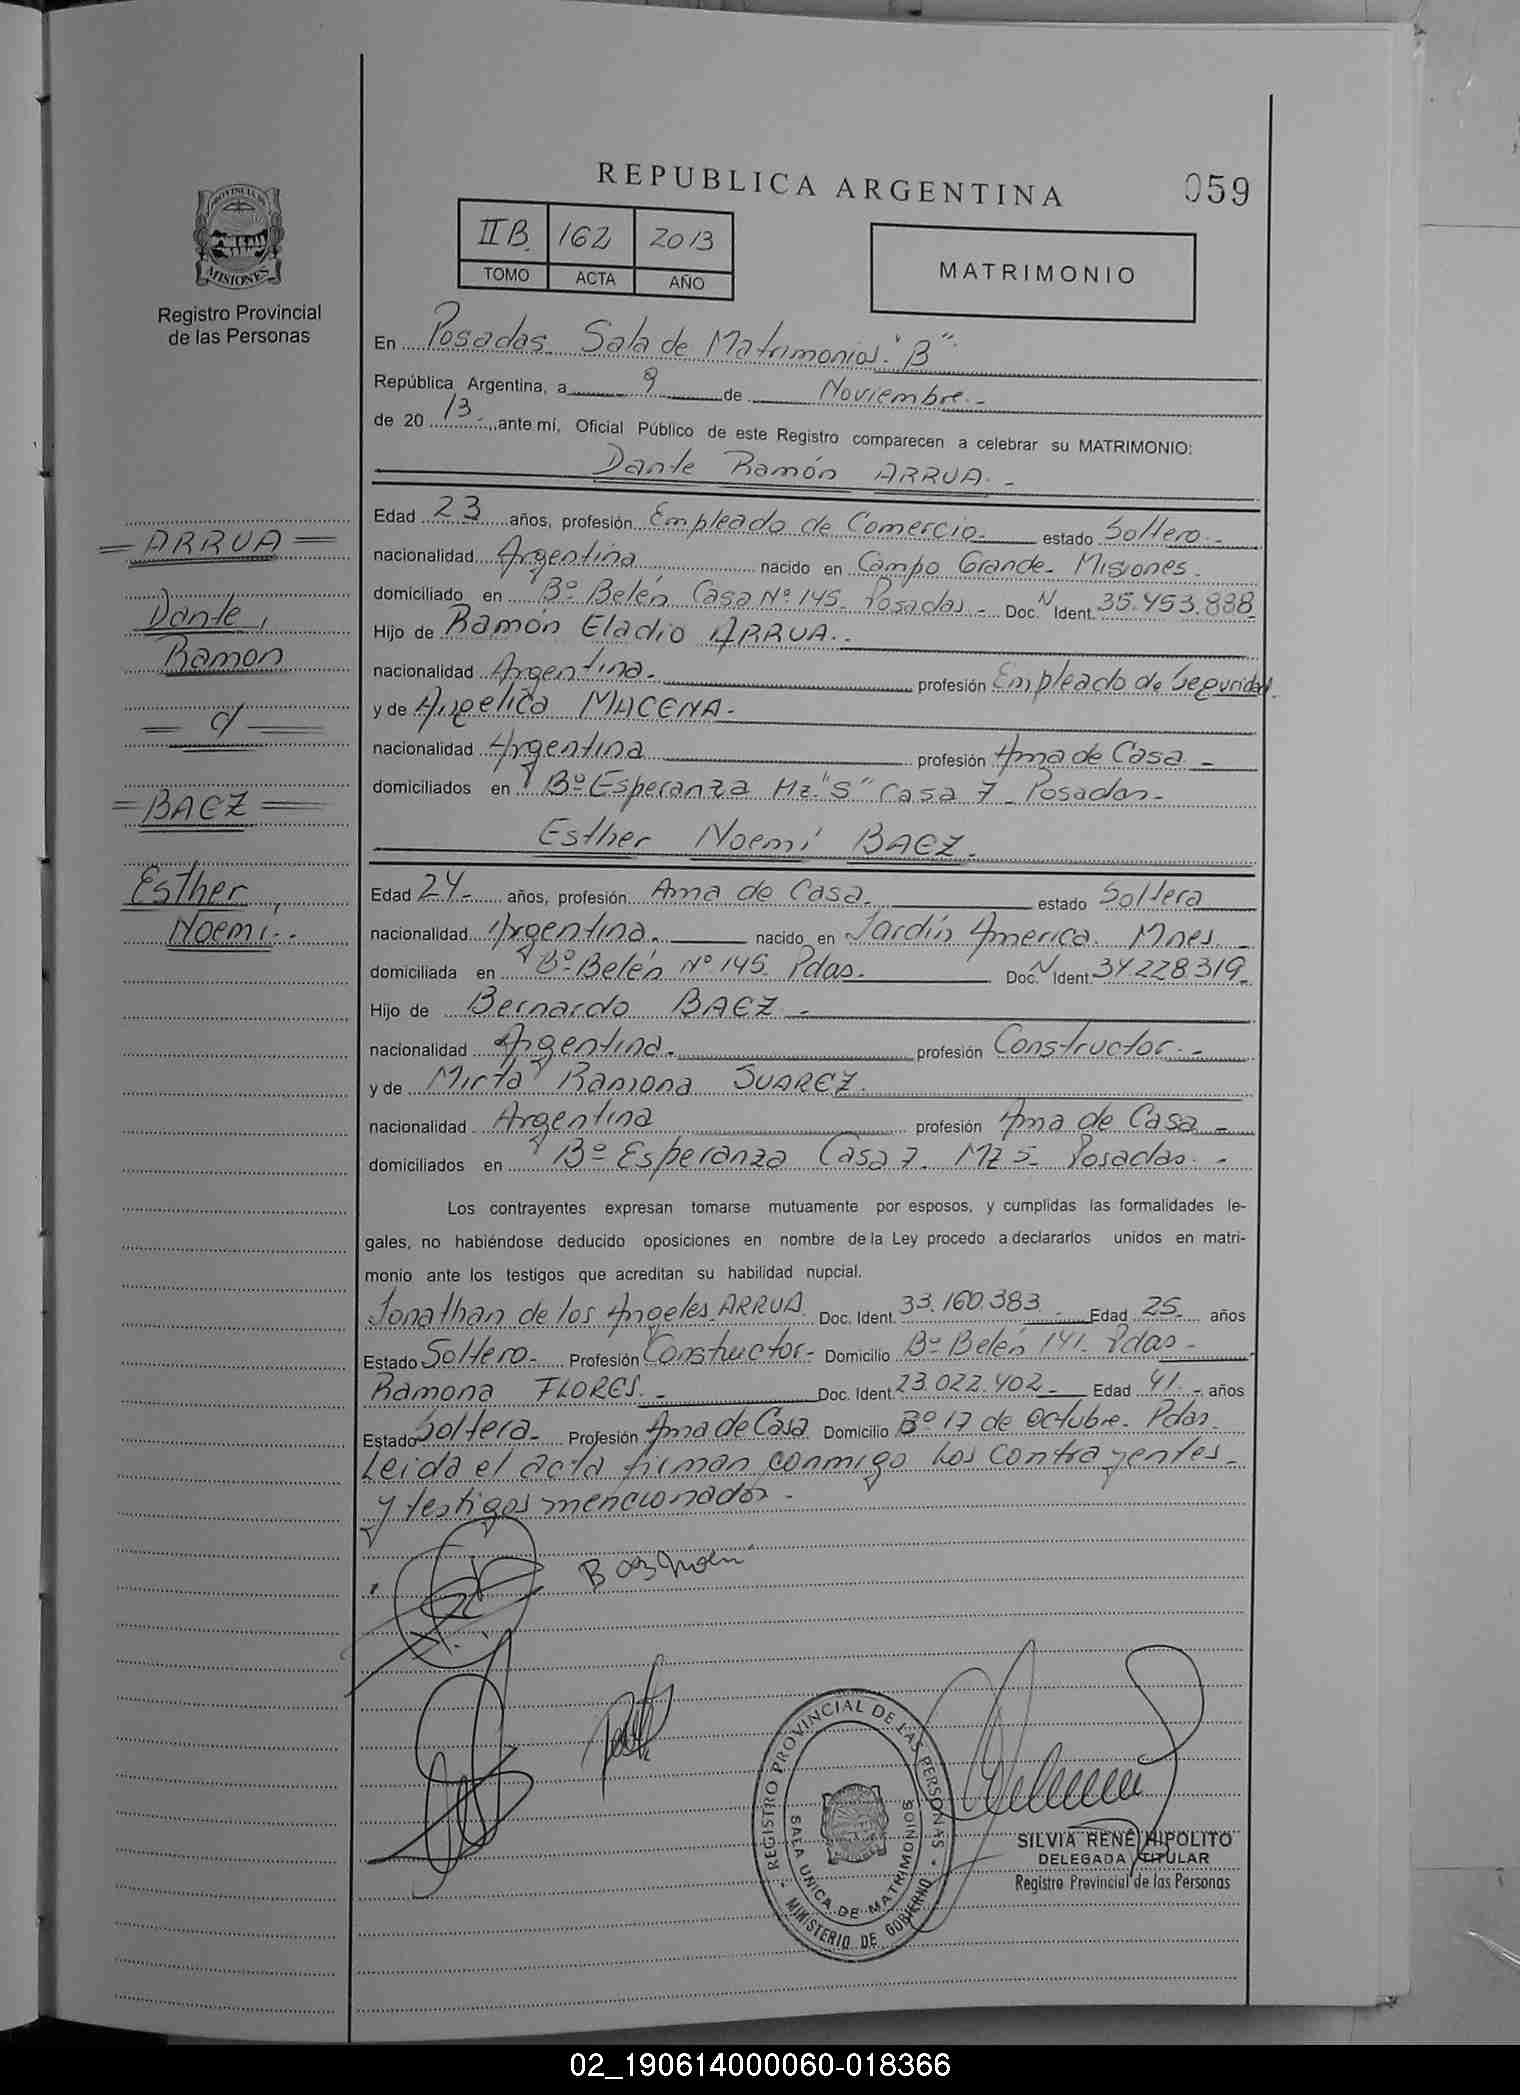 REPUBLICA ARGENTINA
059
PROVINCIA DE
MISIONES
Registro Provincial
de las Personas
IIB. 162 2013
TOMO ACTA AÑO
MATRIMONIO
En Posadas. Sala de Matrimonios "B"
República Argentina, a 9 de Noviembre.-
de 20 13.- ante mí, Oficial Público de este Registro comparecen a celebrar su MATRIMONIO:
Dante Ramón ARRUA.-
= ARRUA =
Dante,
Ramon
= d =
= BAEZ =
Esther,
Noemi.-
Edad 23 años, profesión Empleado de Comercio.- estado Soltero.-
nacionalidad Argentina nacido en Campo Grande- Misiones.
domiciliado en Bº Belén Casa Nº 145- Posadas.- Doc. N Ident. 35.453.888
Hijo de Ramón Eladio ARRUA.-
nacionalidad Argentina.- profesión Empleado de Seguridad.
y de Angelica MACENA.
nacionalidad Argentina profesión Ama de Casa.-
domiciliados en Bº Esperanza Mz. "S" Casa 7- Posadas-
Esther Noemi BAEZ.
Edad 24.- años, profesión Ama de Casa.- estado Soltera
nacionalidad Argentina.- nacido en Jardín America. Mnes-
domiciliada en Bº Belén Nº 145 Pdas. Doc. N Ident. 34.228.319-
Hijo de Bernardo BAEZ.-
nacionalidad Argentina.- profesión Constructor.-
y de Mirta Ramona SUAREZ.
nacionalidad Argentina profesión Ama de Casa-
domiciliados en Bº Esperanza Casa 7. Mz S- Posadas.-
Los contrayentes expresan tomarse mutuamente por esposos, y cumplidas las formalidades le-
gales, no habiéndose deducido oposiciones en nombre de la Ley procedo a declararlos unidos en matri-
monio ante los testigos que acreditan su habilidad nupcial.
Jonathan de los Angeles ARRUA Doc. Ident. 33.160.383 Edad 25- años
Estado Soltero- Profesión Constructor- Domicilio Bº Belén 141- Pdas-
Ramona FLORES.- Doc. Ident. 23.022.402- Edad 41.- años
Estado Soltera- Profesión Ama de Casa Domicilio Bº 17 de Octubre- Pdas.
Leida el acta firman conmigo los contrayentes-
y testigos mencionados-
REGISTRO PROVINCIAL DE LAS PERSONAS
SALA UNICA DE MATRIMONIOS
MINISTERIO DE GOBIERNO
SILVIA RENÉ HIPOLITO
DELEGADA TITULAR
Registro Provincial de las Personas
02_190614000060-018366